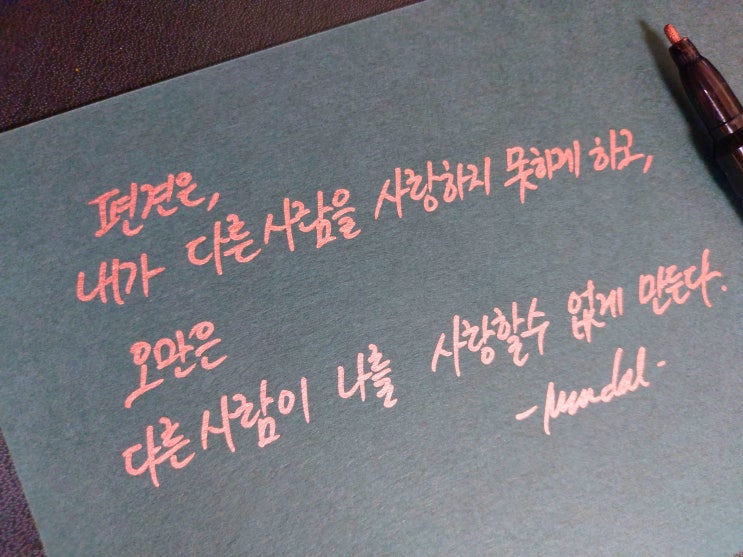 편견은,
내가 다른사람을 사랑하지 못하게 하고,
오만은
다른사람이 나를 사랑할수 없게 만든다.